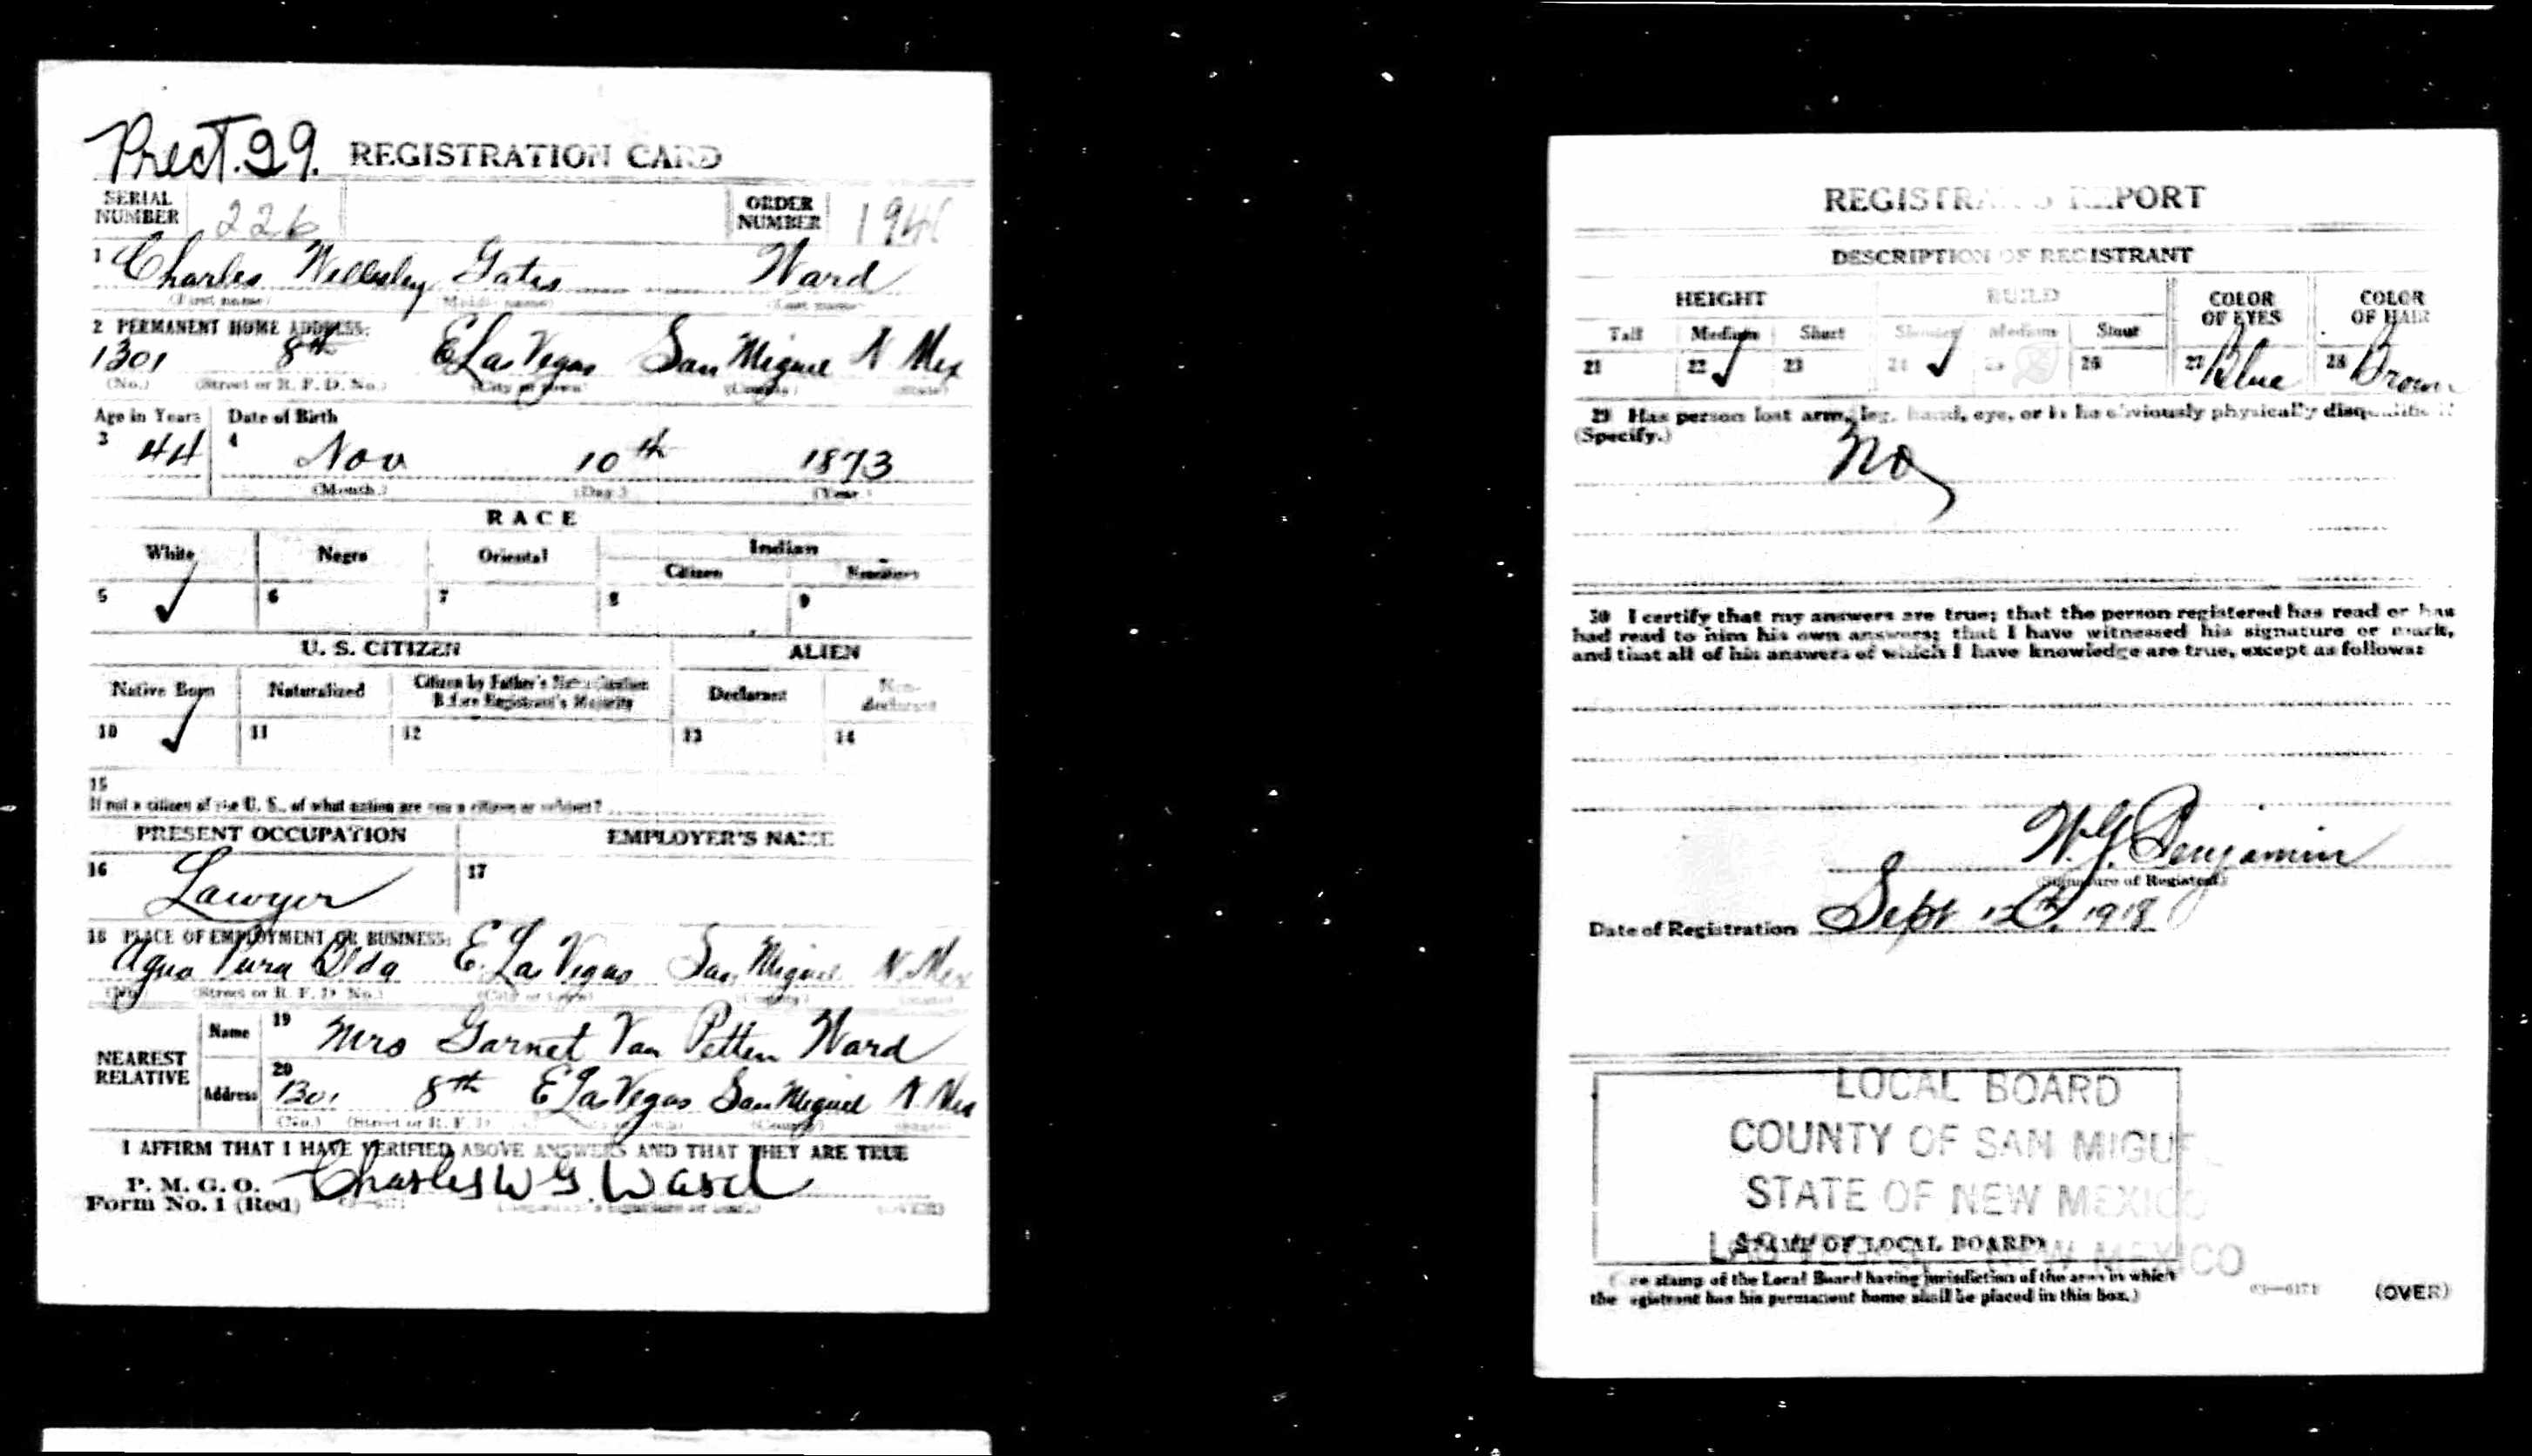 Prect. 29. REGISTRATION CARD
SERIAL NUMBER 226 ORDER NUMBER 194
1 Charles Wellesley Gates Ward
(First name) (Middle name) (Last name)
2 PERMANENT HOME ADDRESS:
1301 8th E Las Vegas San Miguel N Mex
(No.) (Street or R. F. D. No.) (City or town) (County) (State)
Age in Years Date of Birth
3 44 4 Nov 10th 1873
(Month.) (Day.) (Year.)
RACE
White Negro Oriental Indian
Citizen Noncitizen
5 ✓ 6 7 8 9
U. S. CITIZEN ALIEN
Native Born Naturalized Citizen by Father's Naturalization Before Registrant's Majority Declarant Non-declarant
10 ✓ 11 12 13 14
15
If not a citizen of the U. S., of what nation are you a citizen or subject?
PRESENT OCCUPATION EMPLOYER'S NAME
16 Lawyer 17
18 PLACE OF EMPLOYMENT OR BUSINESS:
Agua Pura Bldg E. Las Vegas San Miguel N. Mex
(No.) (Street or R. F. D. No.) (City or town) (County) (State)
NEAREST RELATIVE
Name 19 Mrs Garnet Van Petten Ward
Address 20 1301 8th E Las Vegas San Miguel N Mex
(No.) (Street or R. F. D. No.) (City or town) (County) (State)
I AFFIRM THAT I HAVE VERIFIED ABOVE ANSWERS AND THAT THEY ARE TRUE
P. M. G. O.
Form No. 1 (Red) Charles W G. Ward
(Registrant's signature or mark) (OVER)
REGISTRAR'S REPORT
DESCRIPTION OF REGISTRANT
HEIGHT BUILD COLOR OF EYES COLOR OF HAIR
Tall Medium Short Slender Medium Stout
21 22 ✓ 23 24 ✓ 25 26 27 Blue 28 Brown
29 Has person lost arm, leg, hand, eye, or is he obviously physically disqualified?
(Specify.)
No
30 I certify that my answers are true; that the person registered has read or has
had read to him his own answers; that I have witnessed his signature or mark,
and that all of his answers of which I have knowledge are true, except as follows:
W. G. Benjamin
(Signature of Registrar)
Date of Registration Sept 12th 1918
LOCAL BOARD
COUNTY OF SAN MIGUEL
STATE OF NEW MEXICO
LAS VEGAS, NEW MEXICO
(STAMP OF LOCAL BOARD)
(The stamp of the Local Board having jurisdiction of the area in which
the registrant has his permanent home shall be placed in this box.)
03—6171 (OVER)